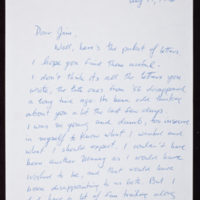 Dear Jim,
Well, here's the packet of letters.
I hope you find them useful.
I don't think it's all the letters you
wrote, the late ones from '66 disappeared
a long time ago. It's been odd thinking
about you a lot the last few days.
I was so young and dumb, too insecure
in myself to know what I wanted and
what I should expect. I wouldn't have
been another as I would have
wished to be, and that would have
been disappointing to us both. But I
did have a lot of fun